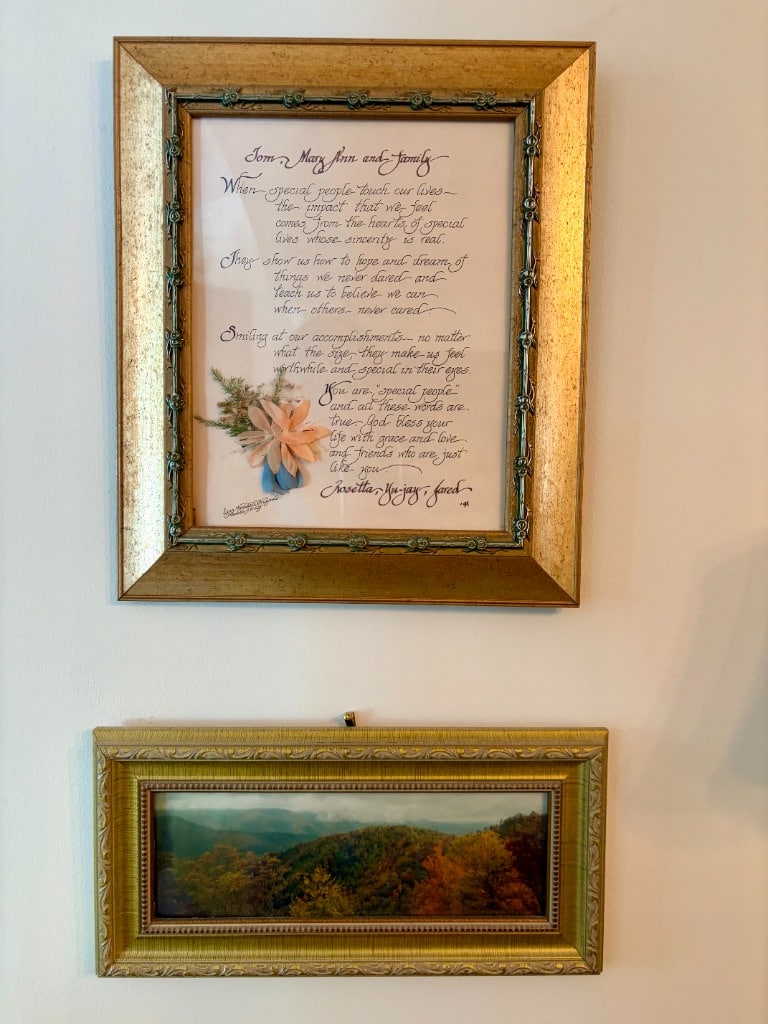 Tom, Mary Ann and family
When special people touch our lives
the impact that we feel
comes from the hearts of special
lives whose sincerity is real.
They show us how to hope and dream of
things we never dared and
teach us to believe we can
when others never cared.
Smiling at our accomplishments no matter
what the size, they make us feel
worthwhile and special in their eyes.
You are "special people"
and all these words are
true. God bless your
life with grace and love
and friends who are just
like you
Rosetta, Yu-jay, Jared